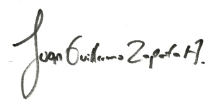 Juan Guillermo Zapata H.